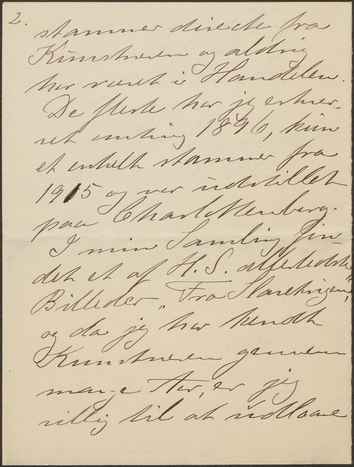 2.
stammer directe fra
Kunstneren og aldrig
har været i Handelen.
De fleste har jeg erhver-
vet omkring 1896, kun
et enkelt stammer fra
1915 og var udstillet
paa Charlottenborg.
I min Samling fin-
det et af H. S. allerbedste
Billeder, "Fra
og da jeg har kendt
Kunstneren gennem
mange Aar, er jeg
villig til at udlaane